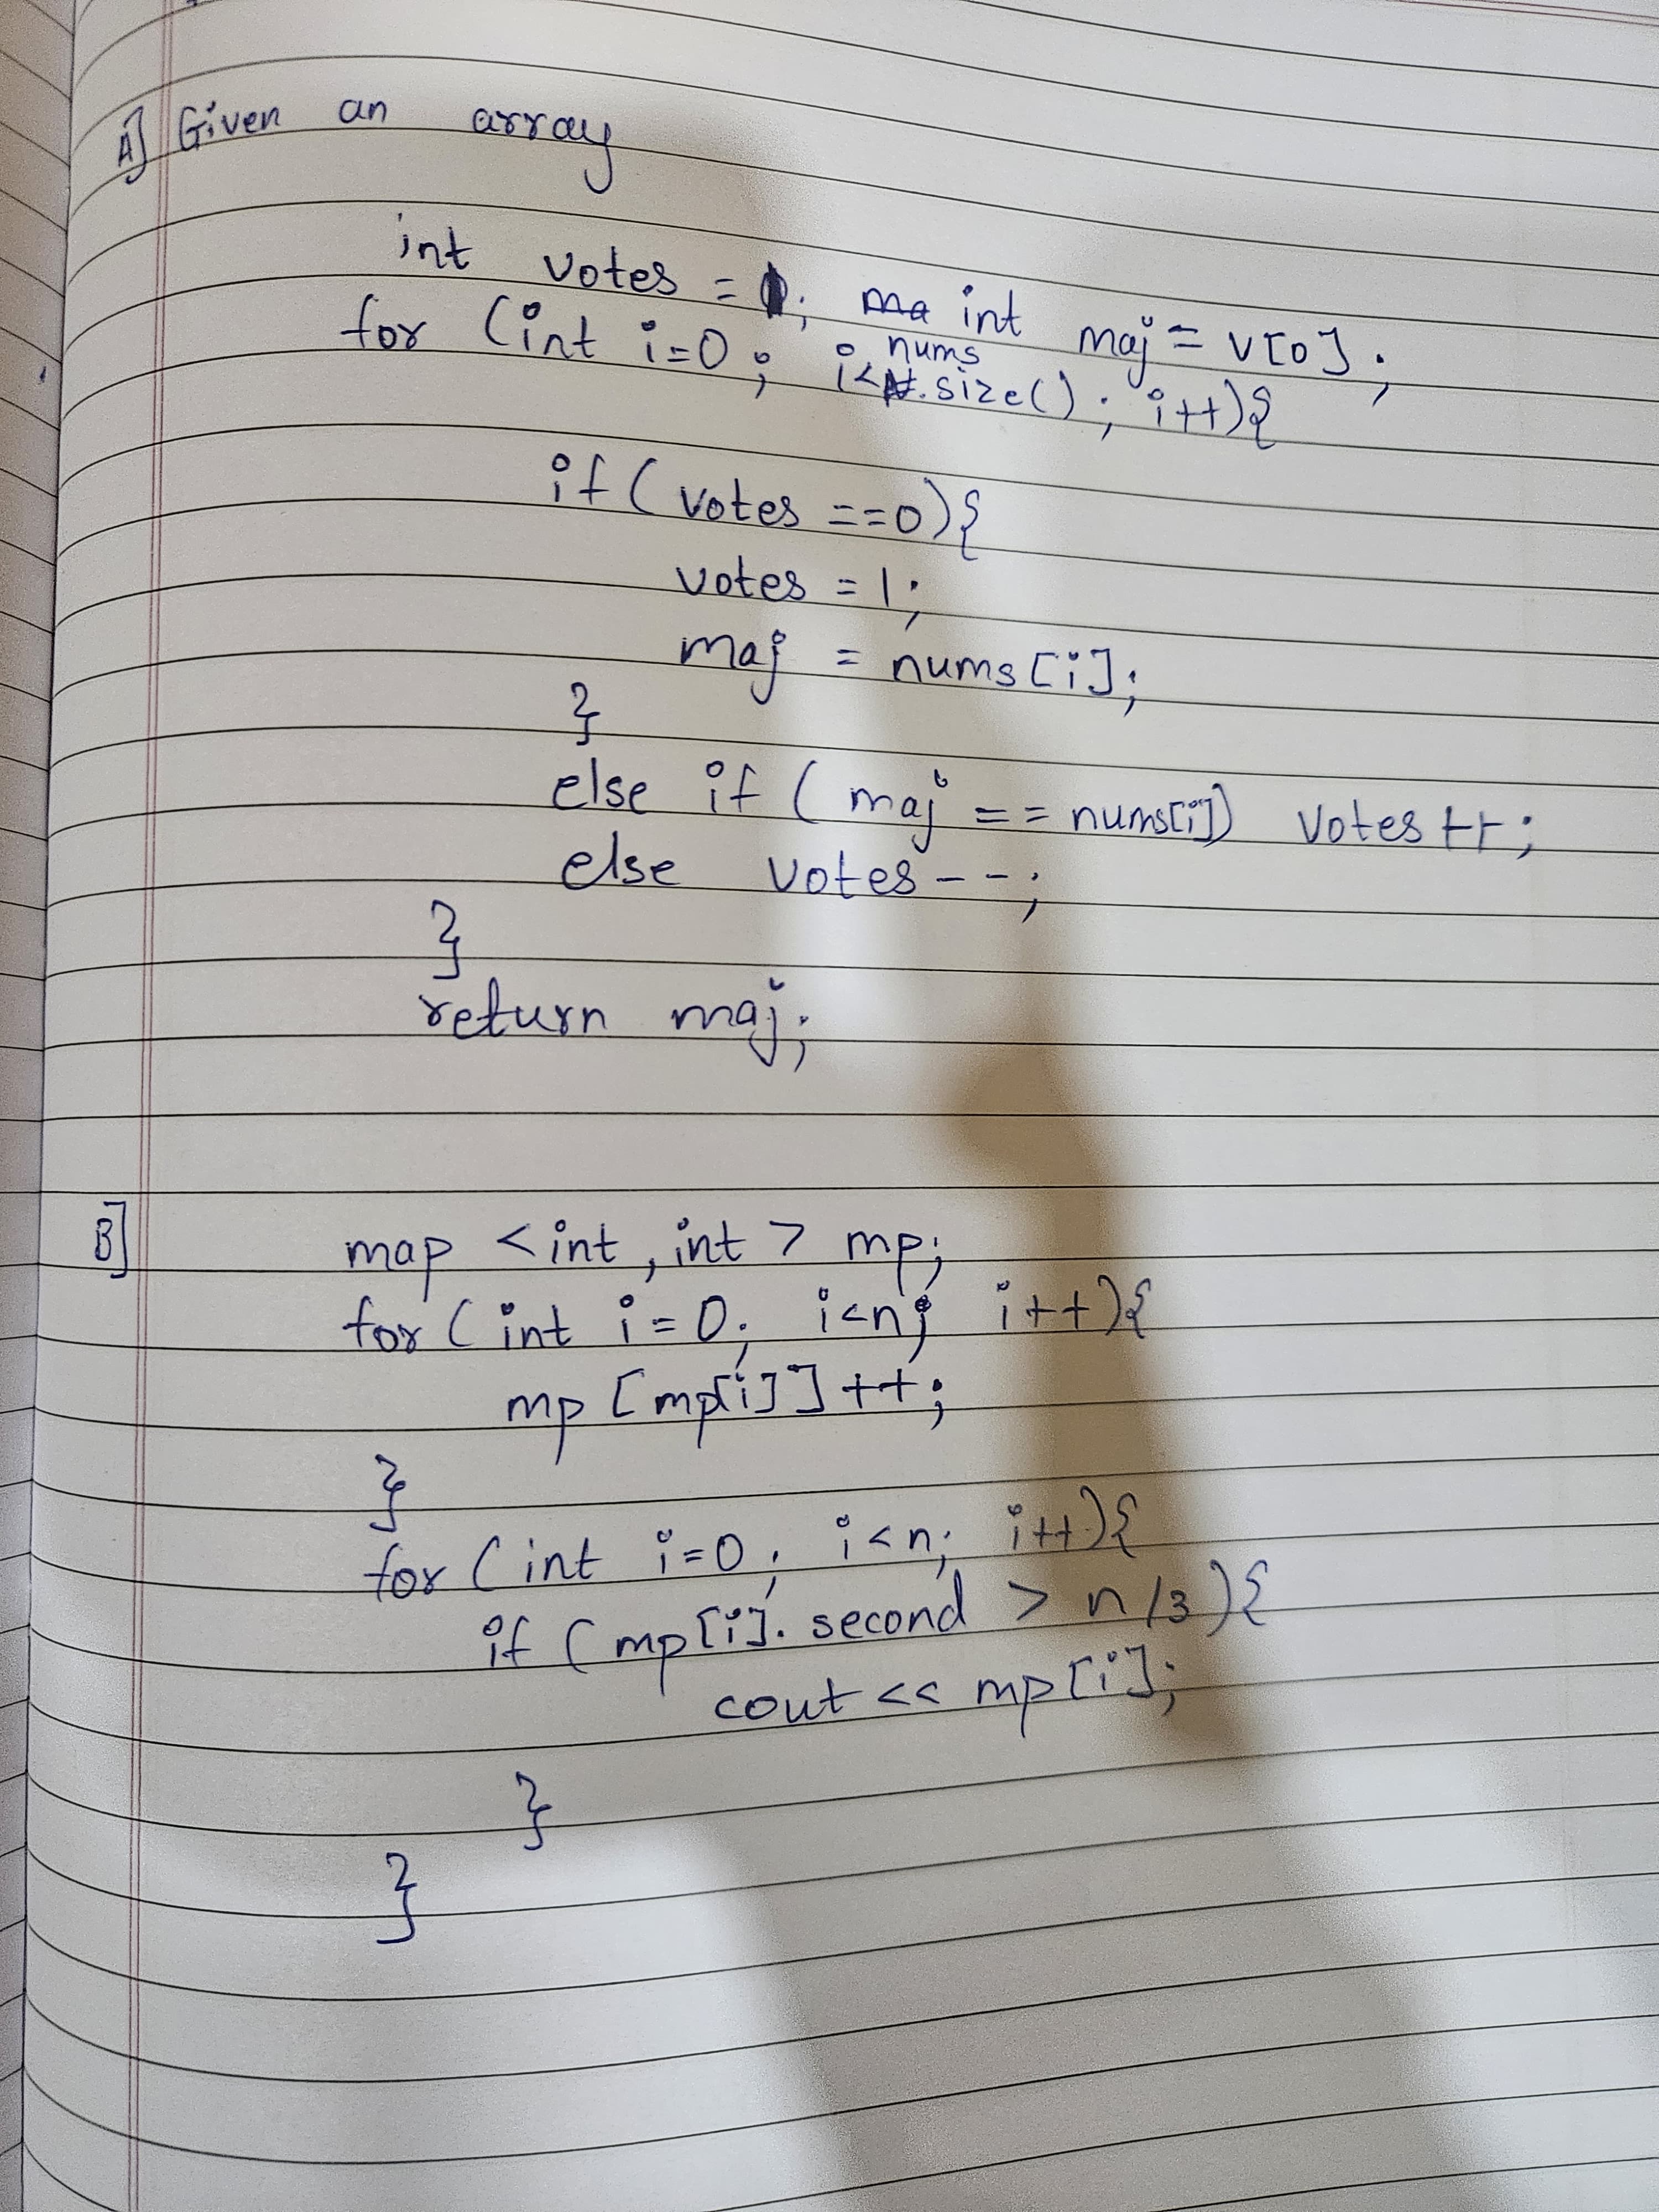 A] Given an array
int votes = 1; ma int maj = v[0];
for (int i=0; i<nums.size(); i++){
if (votes ==0){
votes = 1;
maj = nums[i];
}
else if (maj == nums[i]) votes++;
else votes--;
}
return maj;
B] map <int, int> mp;
for (int i=0; i<n; i++){
mp [mp[i]]++;
}
for (int i=0; i<n; i++){
if (mp[i].second > n/3){
cout << mp[i];
}
}